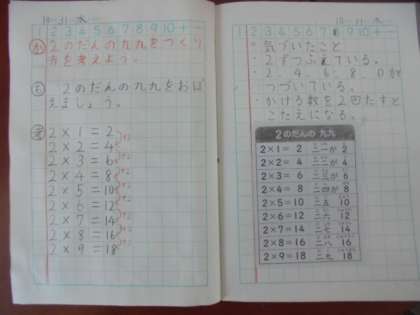 10-31 水
1 2 3 4 5 6 7 8 9 10 +
2のだんの九九をつくり
方を考えよう。
2のだんの九九をおぼ
えましょう。
考
2×1=2
2×2=4
2×3=6
2×4=8
2×5=10
2×6=12
2×7=14
2×8=16
2×9=18
+2
+2
+2
+2
+2
+2
+2
+2
10-31 水
1 2 3 4 5 6 7 8 9 10 +
・気づいたこと
・2ずつふえている。
・2、4、6、8、0が
つづいている。
・かける数を2回たすと
こたえになる。
2のだんの 九九
2×1= 2 二一が 2
2×2= 4 二二が 4
2×3= 6 二三が 6
2×4= 8 二四が 8
2×5=10 二五 10
2×6=12 二六 12
2×7=14 二七 14
2×8=16 二八 16
2×9=18 二九 18